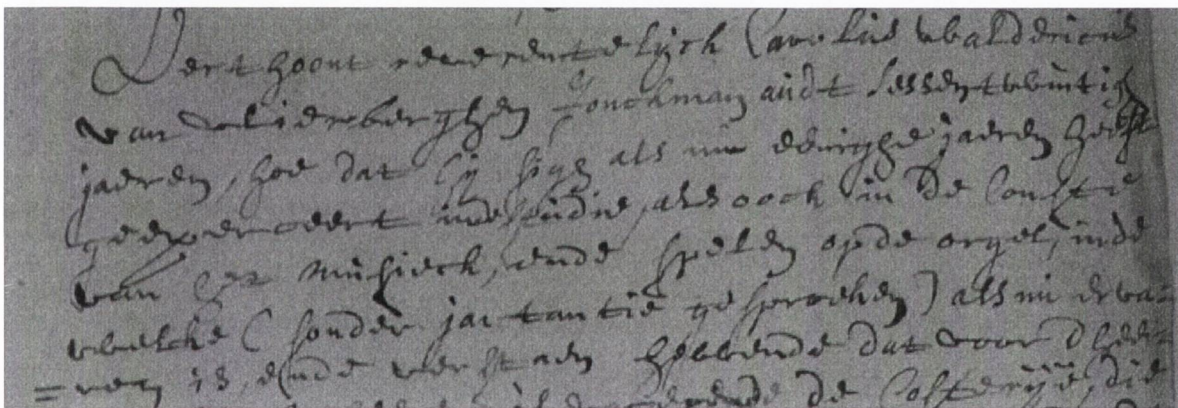 Verthoont reverentelijck Carolus Ubaldericus
van Vlierberghen Jonckman audt sessentwintich
jaeren, hoe dat hij sigh als nu eenighe jaeren heeft
geexerceert inde studie, als oock in de Conste
van het musieck, ende spelen op de orgel, inde
welcke (sonder jactantie gesproken) als nu erva-
=ren is, ende verstaen hebbende dat voor d'heer
de Costerije, die